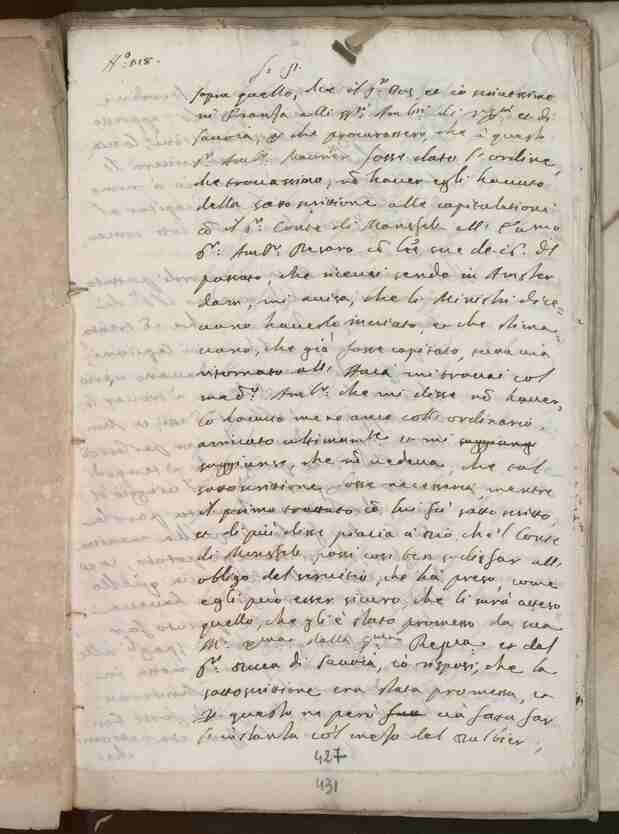 N.o 118.
sopra quello, che il s.r Duca et io scrivessimo
in Franza alli ss.ri Amb.ri di et di
Savoia, che procurassero, che à questo
s.r Amb.r fosse dato l'ordine,
che trovassimo, nõ haver egli havuto
della sottoscrittione alle capitulationi
cõ il s.r Conte di Mansfelt. Ill.
s.r Amb.r Pesaro cõ sue de di 16. del
passato che ricevei sendo in Amster
dam, mi avisa, che li Ministri dice-
vano haverlo inviato, et che stima
vano, che già fosse capitato, una
ritornato all' Haia mi trovai col
s.r Amb.r che mi disse nõ haver-
lo havuto ne meno anco coll' ordinario
arrivato ultimamte et mi soggiung
soggiunse, che nõ vedeva, che tal
sottoscrittione fosse necessaria mentre
il primo trattato cõ lui fù sottoscritto,
et di più disse piacia à Dio che'l Conte
di Mansfelt possi così ben sodisfar all'
obligo del servitio, che hà preso, come
egli può esser sicuro, che li sarà atteso
quello, che gli è stato promesso da sua
M.tà dalla Rep.ca et dal
s.r Ducca di Savoia, io risposi, che la
sottoscrittione era stata promessa, et
questo ne però far
l'instanza col mezo del
427
431